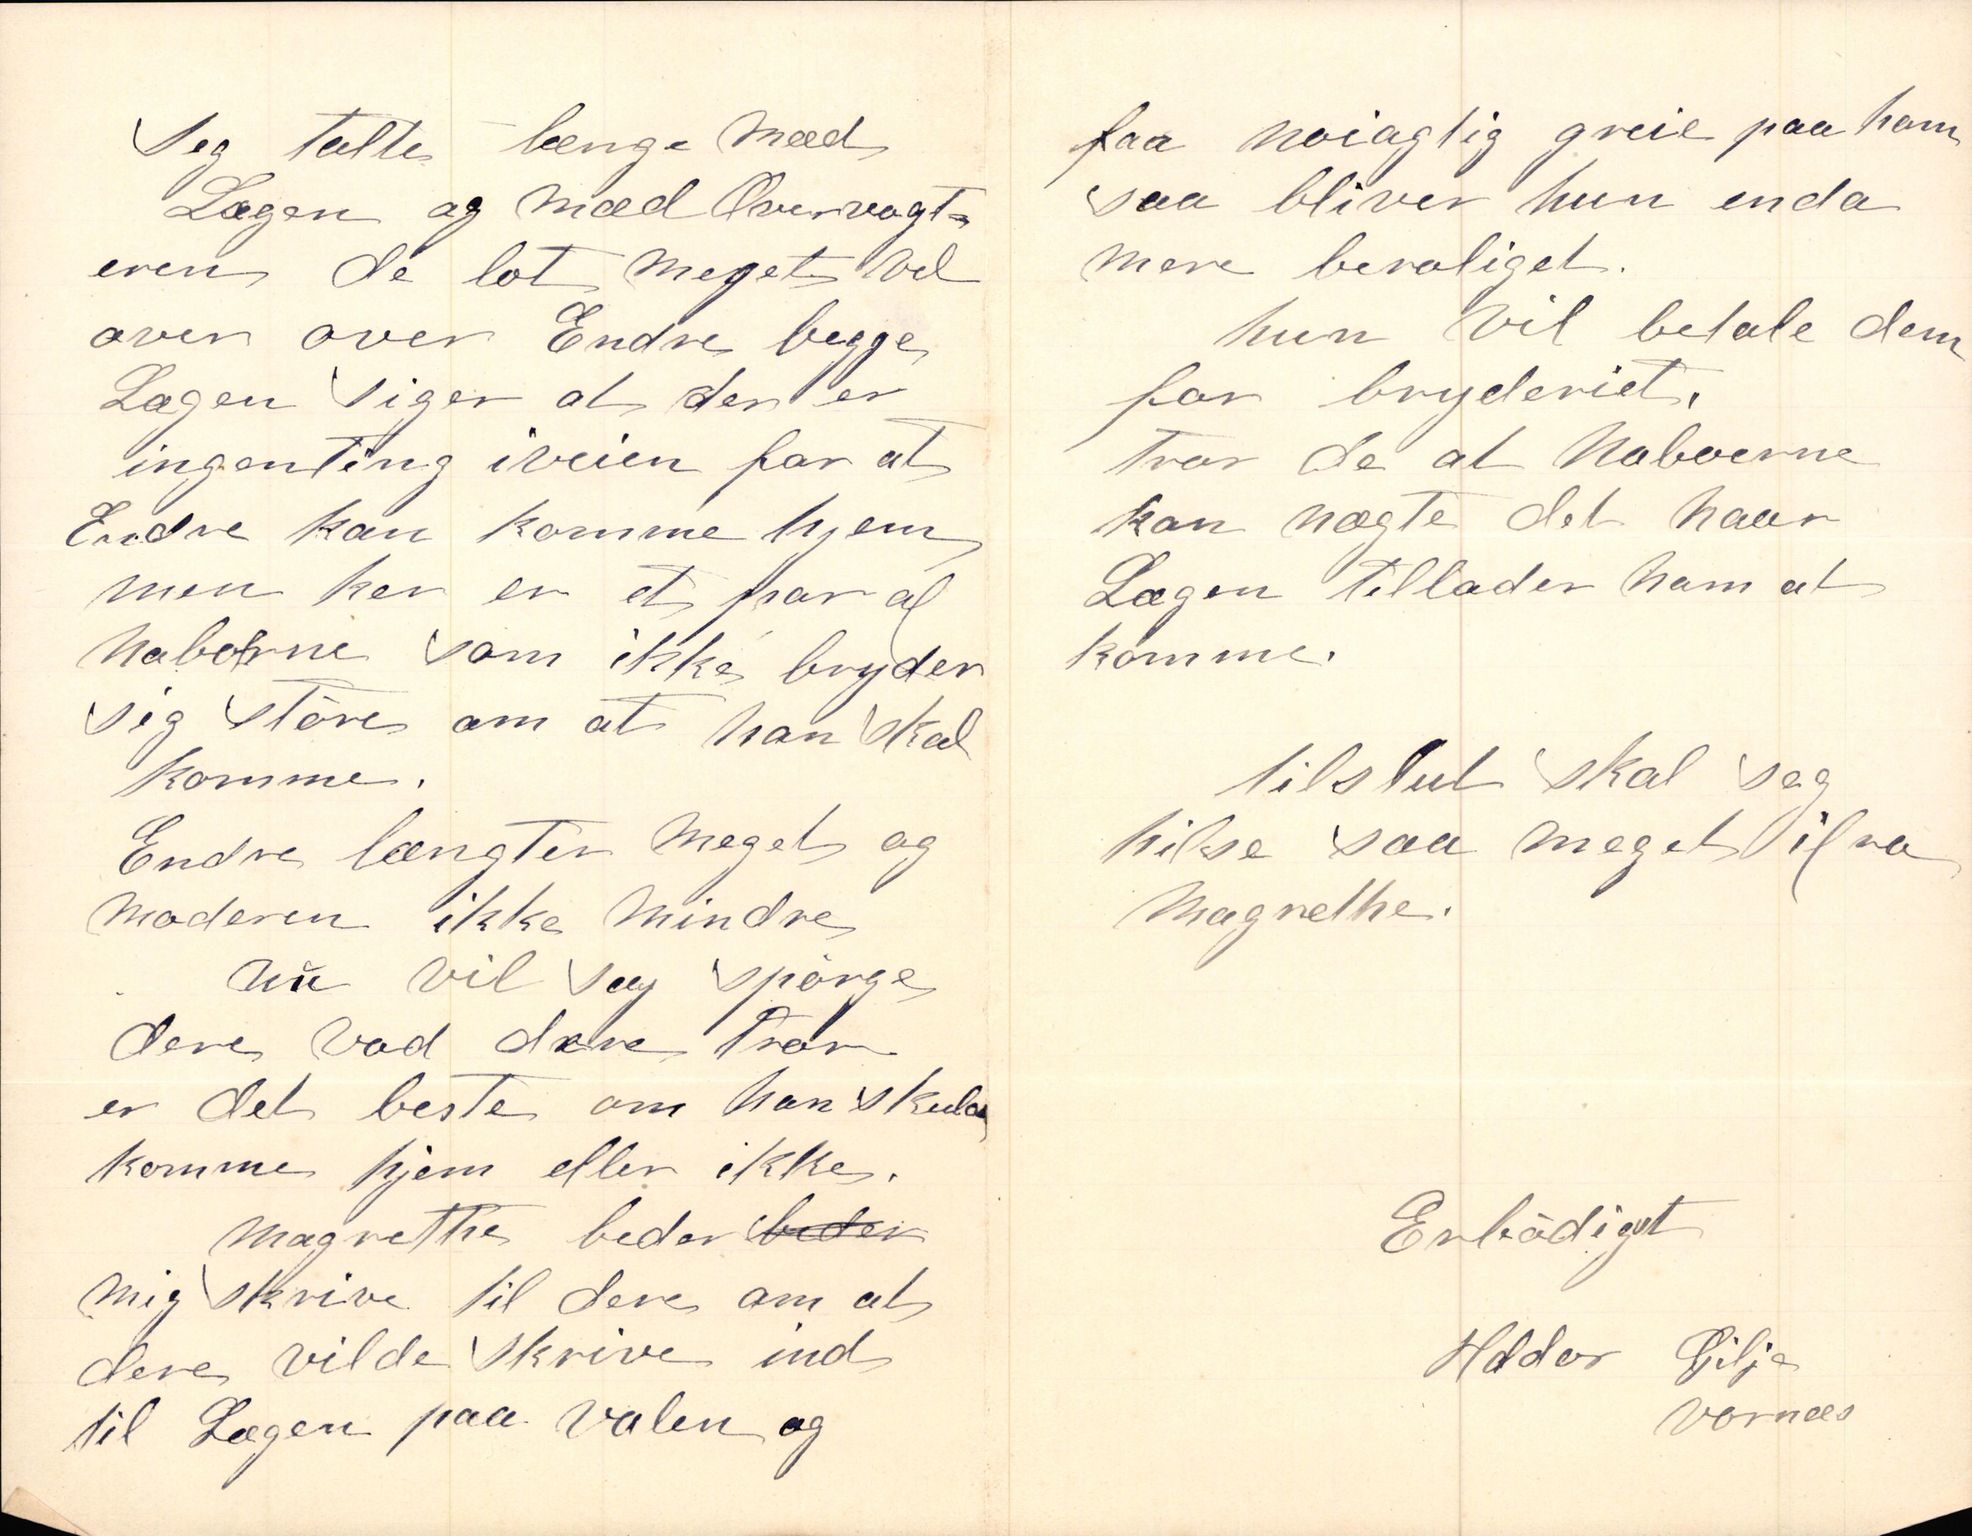 Jeg talte længe mæd
Lægen og mæd Overvagt=
eren de lot meget vel
over over Endre begge
Lægen siger at der er
ingenting iveien for at
Endre kan komme hjem
men her er et par af
naboerne som ikke bryder
sig støre om at han skal
komme.
Endre længter meget og
moderen ikke mindre
nu vil jeg spørge
dere vad dere tror
er det beste om han skula
komme hjem eller ikke.
Magrethe beder beder
mig skrive til dere om at
dere vilde skrive ind
til Lægen paa Valen og
faa nøiagtig greie paa ham
saa bliver hun enda
mere beroliget.
hun vil betale dem
for bryderiet.
tror de at Naboerne
kan nægte det naar
Lægen tillader ham at
komme.
tilslut skal jeg
hilse saa meget ifra
Magrethe.
Erbødigst
Haldor Gilje
Vornæs